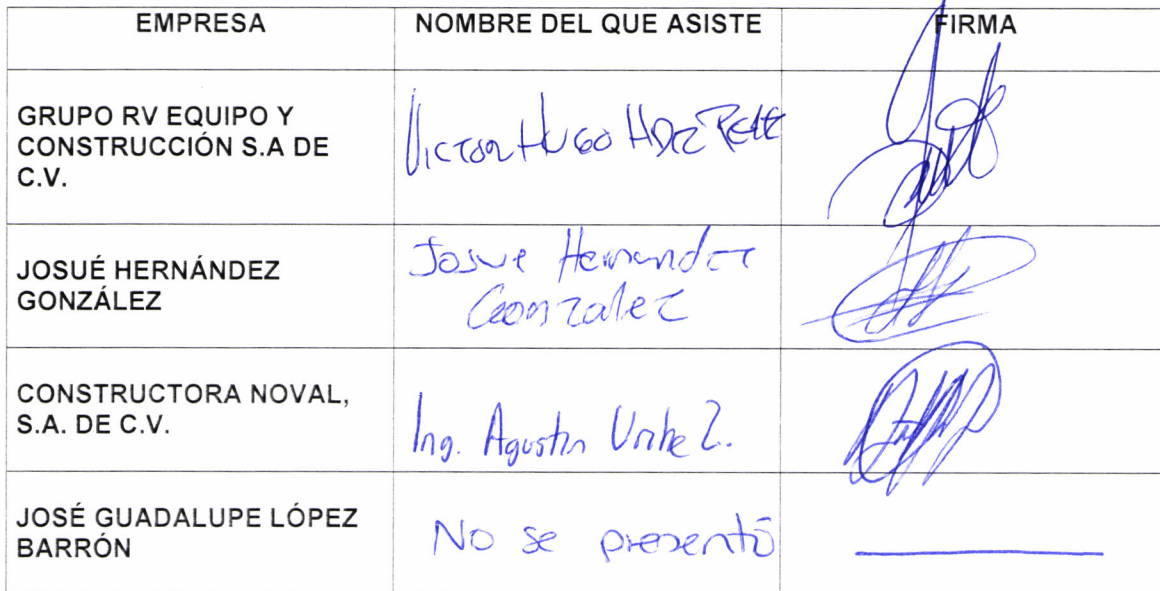 EMPRESA NOMBRE DEL QUE ASISTE FIRMA
GRUPO RV EQUIPO Y
CONSTRUCCIÓN S.A DE
C.V.
VICTOR HUGO HDEZ
JOSUÉ HERNÁNDEZ
GONZÁLEZ
Josue Hernandez
Gonzalez
CONSTRUCTORA NOVAL,
S.A. DE C.V.
Ing. Agustin Uribe Z.
JOSÉ GUADALUPE LÓPEZ
BARRÓN
No se presentó